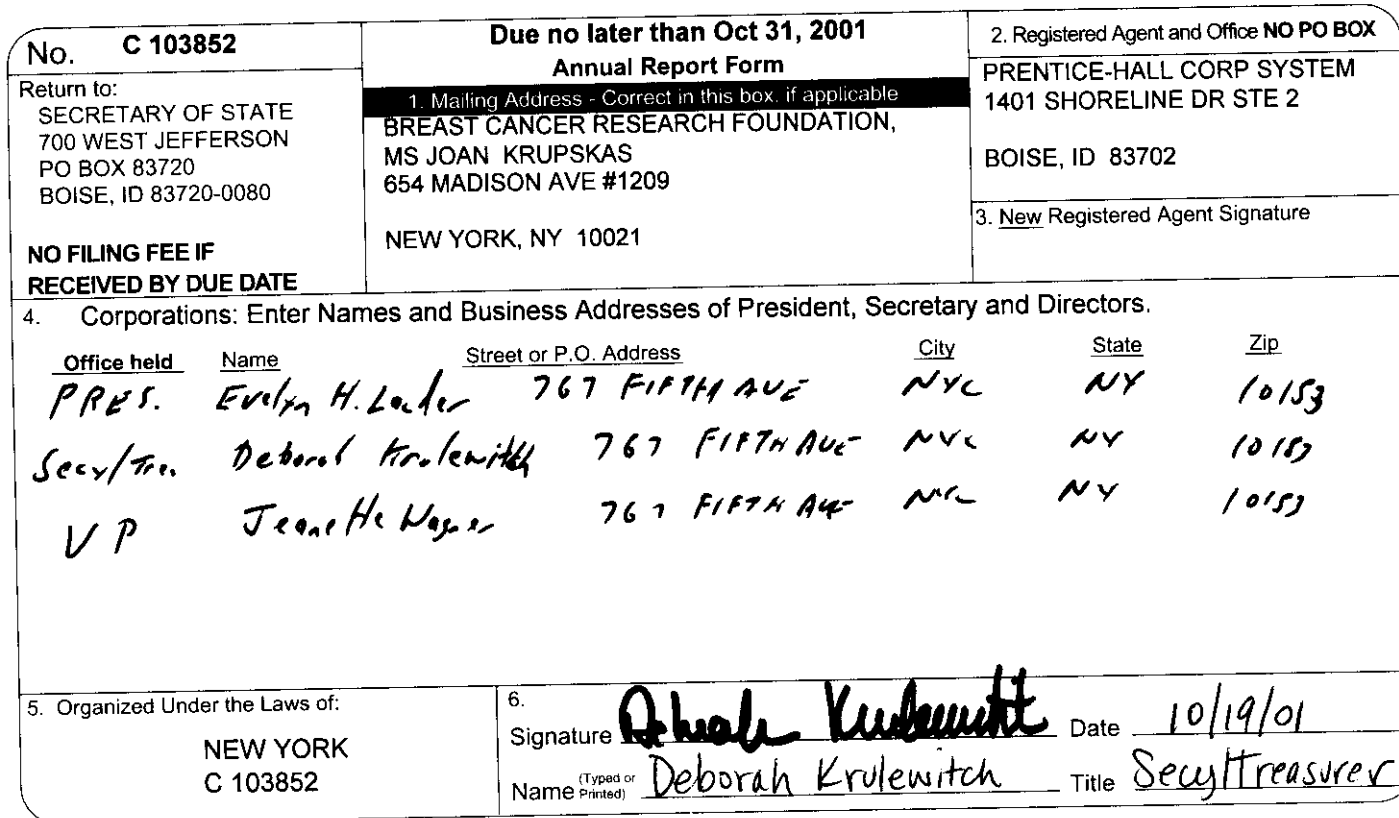 No. C 103852
Return to:
SECRETARY OF STATE
700 WEST JEFFERSON
PO BOX 83720
BOISE, ID 83720-0080
NO FILING FEE IF
RECEIVED BY DUE DATE
Due no later than Oct 31, 2001
Annual Report Form
1. Mailing Address - Correct in this box. if applicable
BREAST CANCER RESEARCH FOUNDATION,
MS JOAN KRUPSKAS
654 MADISON AVE #1209
NEW YORK, NY 10021
2. Registered Agent and Office NO PO BOX
PRENTICE-HALL CORP SYSTEM
1401 SHORELINE DR STE 2
BOISE, ID 83702
3. New Registered Agent Signature
4. Corporations: Enter Names and Business Addresses of President, Secretary and Directors.
Office held Name Street or P.O. Address City State Zip
PRES. Evelyn H. Lauder 767 FIFTH AVE NYC NY 10153
Secy/Tre. Deborah Krulewitch 767 FIFTH AVE NYC NY 10153
VP Jeanette Wagner 767 FIFTH AVE NYC NY 10153
5. Organized Under the Laws of:
NEW YORK
C 103852
6.
Signature Deborah Krulewitch Date 10/19/01
Name (Typed or Printed) Deborah Krulewitch Title Secy/Treasurer